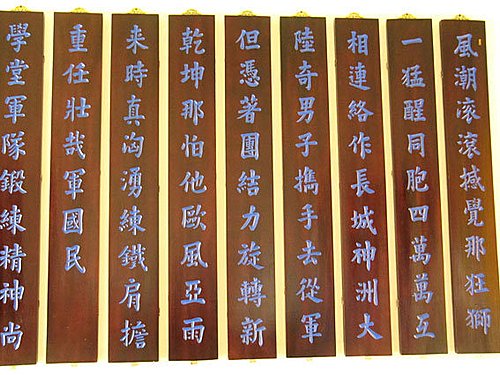 風潮滾滾撼覺那狂獅
一猛醒同胞四萬萬互
相連絡作長城神洲大
陸奇男子擕手去從軍
但憑著團結力旋轉新
乾坤那怕他歐風亞雨
来時真洶湧練鐵肩擔
重任壯哉軍國民
學堂軍隊鍛練精神尚